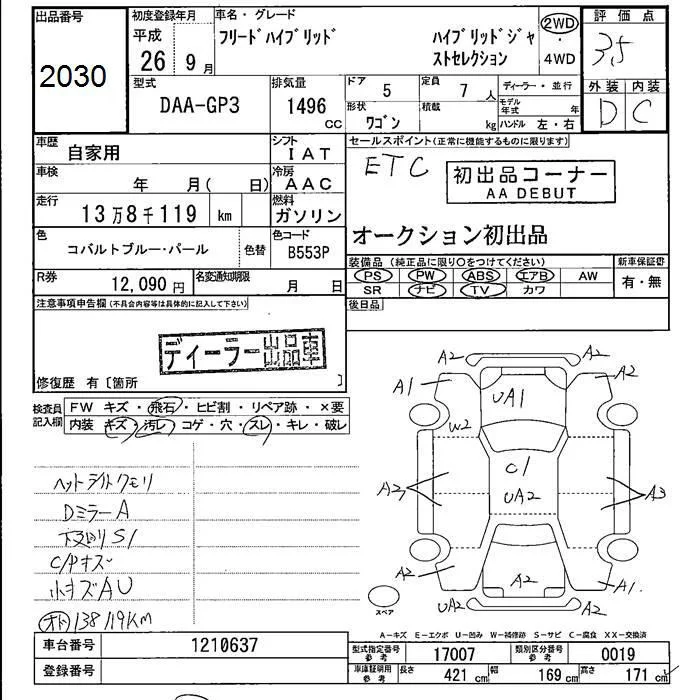 出品番号
2030
初度登録年月
平成
26年 9月
車名・グレード
フリードハイブリッド
ハイブリッドジャ
ストセレクション
2WD
・
4WD
評価点
3.5
外装 内装
D C
型式
DAA-GP3
排気量
1496
CC
ドア 5
定員 7 人
ディーラー・並行
形状
ワゴン
積載 kg
モデル年式 年
ハンドル 左・右
車歴
自家用
シフト
IAT
セールスポイント(正常に機能するものに限ります)
ETC
初出品コーナー
AA DEBUT
車検
年 月( 日)
冷房
AAC
走行
13万8千119 km
燃料
ガソリン
オークション初出品
色
コバルトブルー・パール
色替
色コード
B553P
装備品(純正品に限り○をつけてください)
新車保証書
PS PW ABS エアB AW
有・無
SR ナビ TV カワ
R券
12,090円
名変通知期限
月 日
後日品
注意事項申告欄(不具合内容等は具体的に記入して下さい)
ディーラー出品車
修復歴 有〔箇所 〕
検査員
記入欄
FW キズ・飛石・ヒビ割・リペア跡・×要
内装 キズ・汚レ・コゲ・穴・スレ・キレ・破レ
ヘットライトクモリ
DミラーA
下廻りS1
C/Pキズ
小キズAU
オド138119KM
A2
A2
A1
A2
UA1
W2
C1
UA2
A3
A3
A2
A2
A1
UA2
スペア
A-キズ E-エクボ U-凹み W-補修跡 S-サビ C-腐食 XX-交換済
車台番号
1210637
登録番号
型式指定番号
参考
17007
類別区分番号
参考
0019
車庫証明用
参考
長さ 421 cm
幅 169 cm
高さ 171 cm